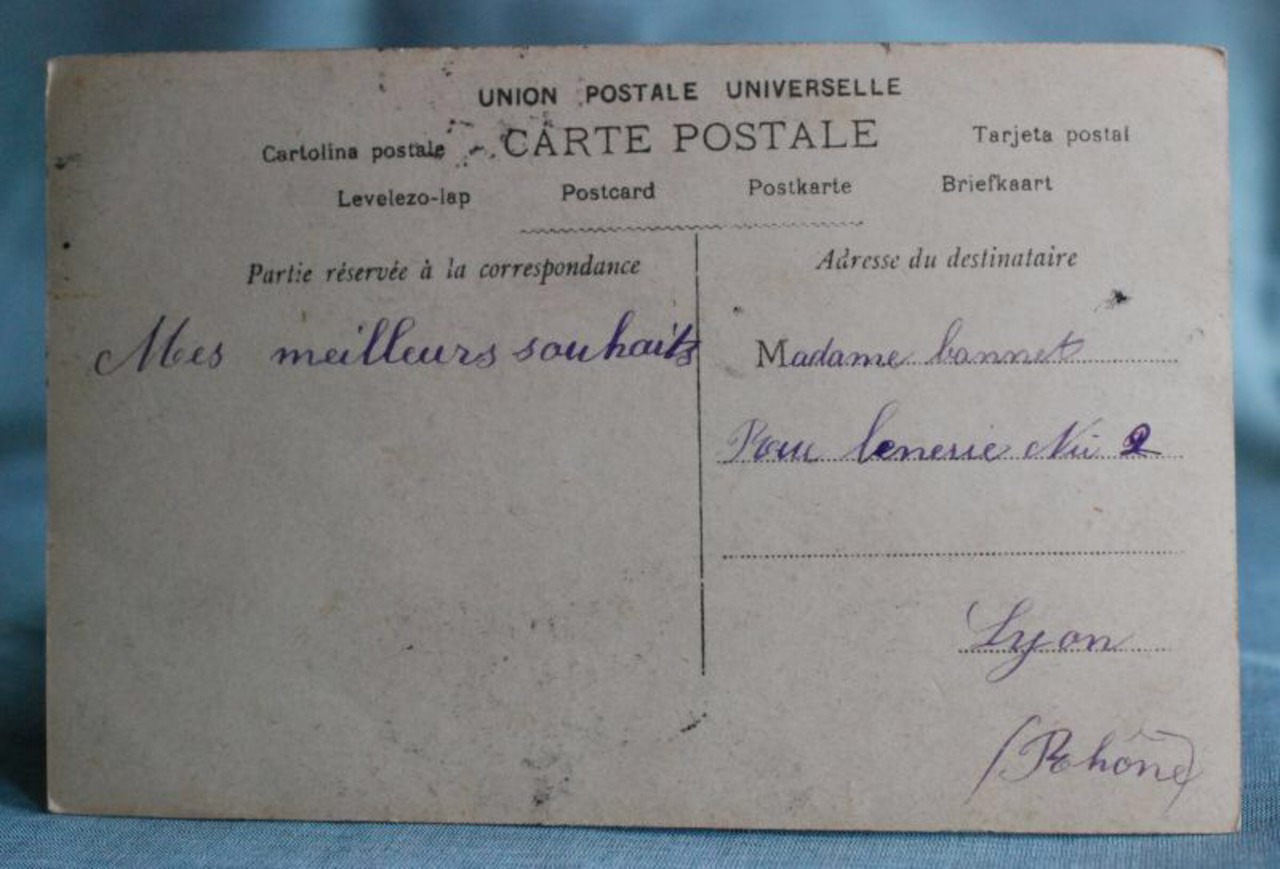 UNION POSTALE UNIVERSELLE
CARTE POSTALE
Cartolina postale
Tarjeta postal
Levelezo-lap Postcard Postkarte Briefkaart
Partie réservée à la correspondance
Mes meilleurs souhaits
Adresse du destinataire
Madame bonnet
2
Lyon
(Rhône)